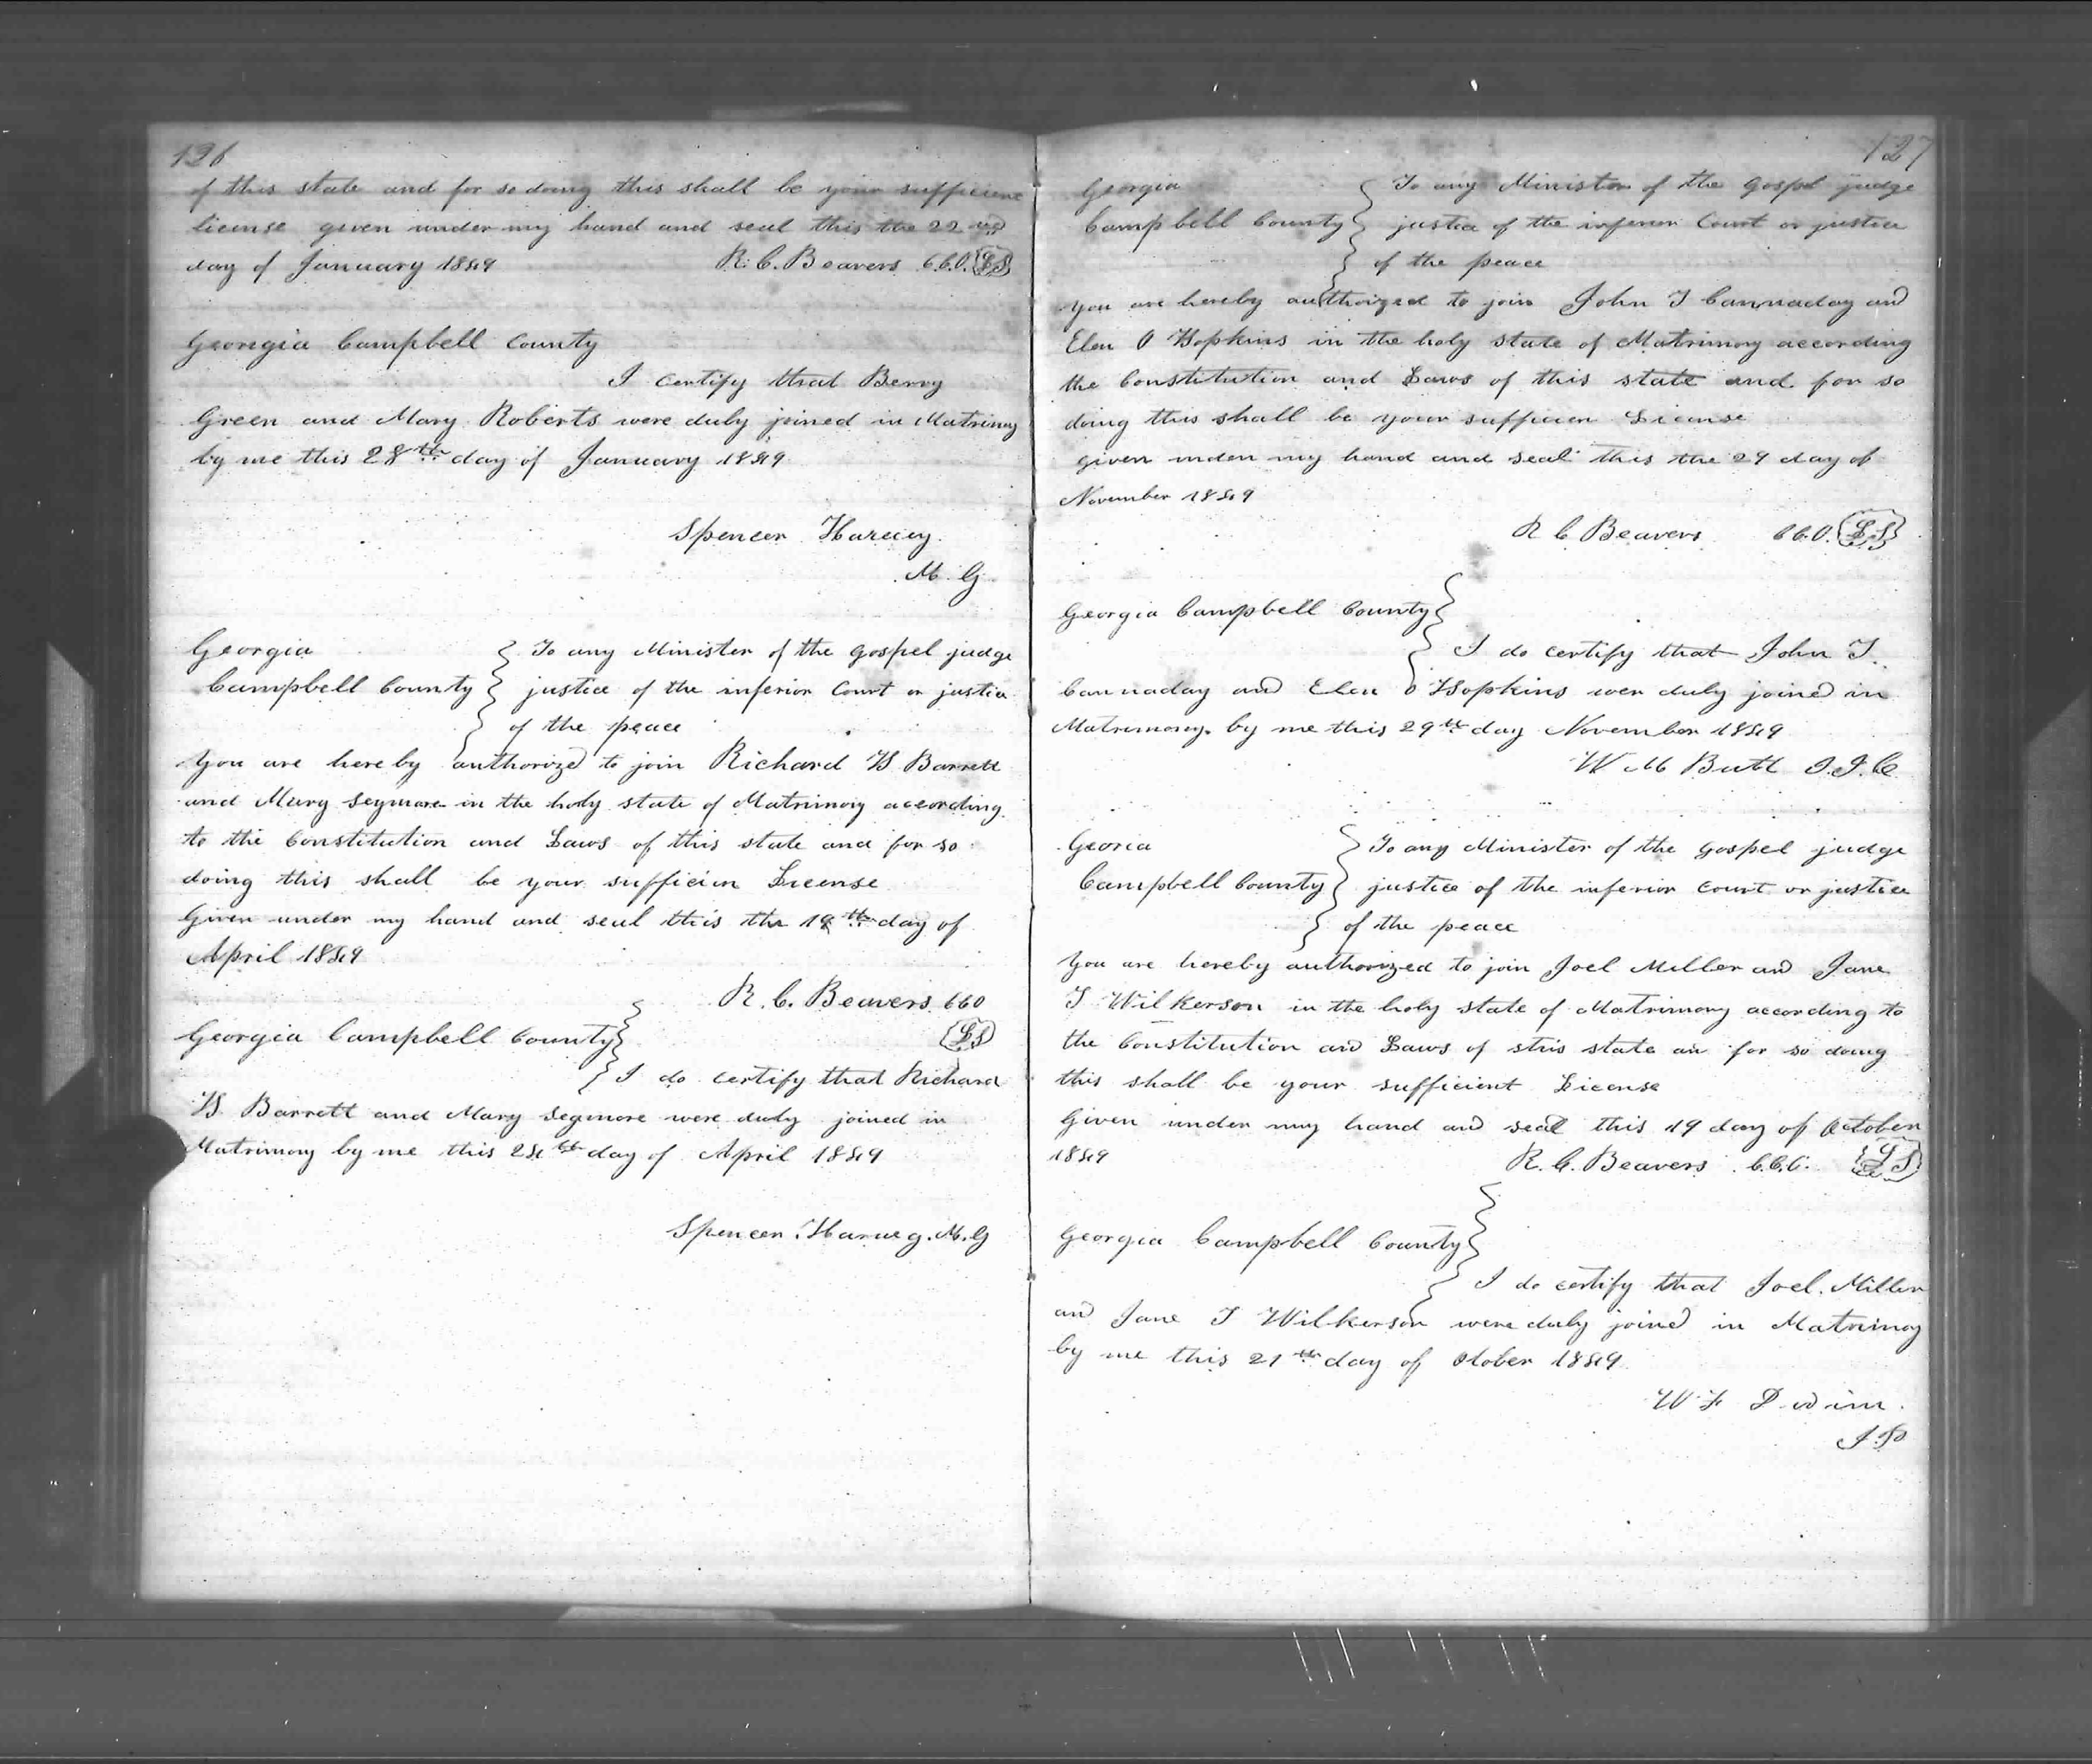 126
of this state and for so doing this shall be your sufficient
license given under my hand and seal this the 22nd
day of January 1849 R. C. Beavers C.C.O. L S
Georgia Campbell County
I certify that Berry
Green and Mary Roberts were duly joined in Matrimony
by me this 28th day of January 1849
Spencer Harvey.
M. G.
Georgia } To any Minister of the gospel judge
Campbell County } justice of the inferior Court or justice
} of the peace
You are hereby authorized to join Richard W Barrett
and Mary Seymore in the holy state of Matrimony according
to the Constitution and Laws of this state and for so
doing this shall be your sufficien License
Given under my hand and seal this the 19th day of
April 1849
R. C. Beavers. CCO
L S
Georgia Campbell County }
} I do certify that Richard
W Barrett and Mary Segmore were duly joined in
Matrimony by me this 24th day of April 1849
Spencer Harvey. M. G
127
Georgia } To any Minister of the gospel judge
Campbell County } justice of the inferior Court or justice
} of the peace
You are hereby authorized to join John T Cannaday and
Elen O Hopkins in the holy state of Matrimony according
the Constitution and Laws of this state and for so
doing this shall be your sufficien License
given unden my hand and seal this the 29 day of
November 1849
R C Beavers C.C.O. L S
Georgia Campbell County }
} I do certify that John T.
Cannaday and Elen O Hopkins wer duly joined in
Matrimony by me this 29th day November 1849
W M Butt J. I. C
Georia } To any Minister of the gospel judge
Campbell County } justice of the inferior court or justice
} of the peace
You are hereby authorized to join Joel Miller and Jane
T Wilkerson in the holy state of Matrimony according to
the Constitution and Laws of this state an for so doing
this shall be your sufficient License
Given under my hand and seal this 19 day of October
1849 R. C. Beavers C.C.C. L S
Georgia Campbell County }
} I do certify that Joel Miller
and Jane T Wilkerson were duly joined in Matrimony
by me this 21th day of Otober 1849
W F
J. P